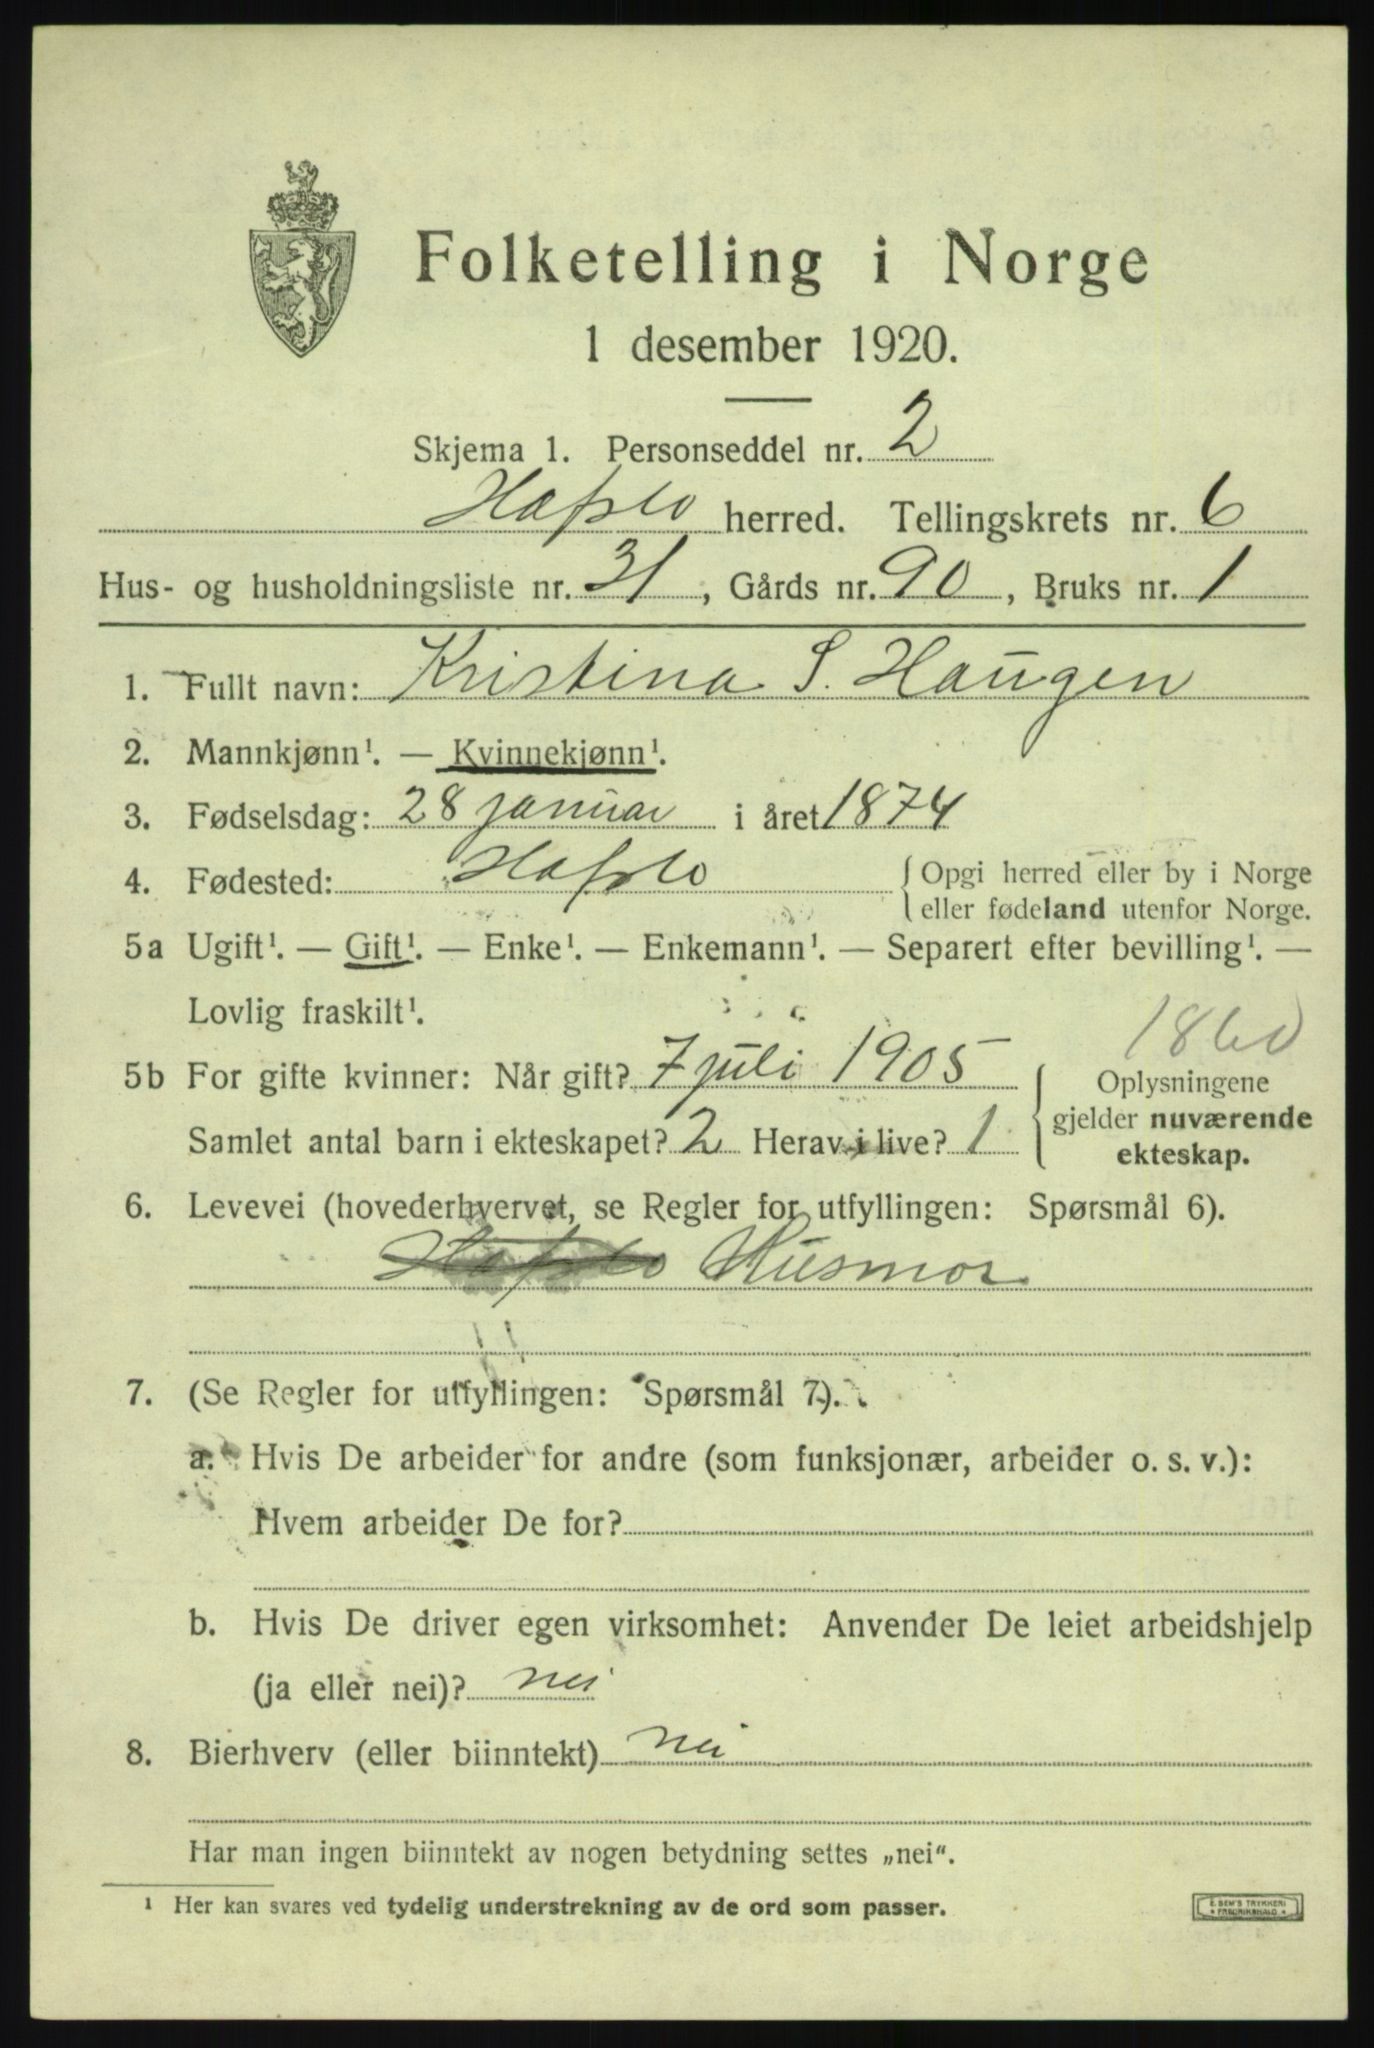 Folketelling i Norge
1 desember 1920.
Skjema 1. Personseddel nr. 2
Hafslo herred. Tellingskrets nr. 6
Hus- og husholdningsliste nr. 31, Gårds nr. 90, Bruks nr. 1
1. Fullt navn: Kristina S. Haugen
2. Mannkjønn¹. — Kvinnekjønn¹.
3. Fødselsdag: 28 januar i året 1874
4. Fødested: Hafslo { Opgi herred eller by i Norge
eller fødeland utenfor Norge.
5a Ugift¹. — Gift¹. — Enke¹. — Enkemann¹. — Separert efter bevilling¹. —
Lovlig fraskilt¹.
5b For gifte kvinner: Når gift? 7 juli 1905
Samlet antal barn i ekteskapet? 2 Herav i live? 1
Oplysningene
gjelder nuværende
ekteskap.
6. Levevei (hovederhvervet, se Regler for utfyllingen: Spørsmål 6).
Hafslo Husmor
7. (Se Regler for utfyllingen: Spørsmål 7).
a. Hvis De arbeider for andre (som funksjonær, arbeider o. s. v.):
Hvem arbeider De for?
b. Hvis De driver egen virksomhet: Anvender De leiet arbeidshjelp
(ja eller nei)? nei
8. Bierhverv (eller biinntekt) nei
Har man ingen biinntekt av nogen betydning settes „nei“.
¹ Her kan svares ved tydelig understrekning av de ord som passer.
E. SEM'S TRYKKERI
FREDRIKSHALD